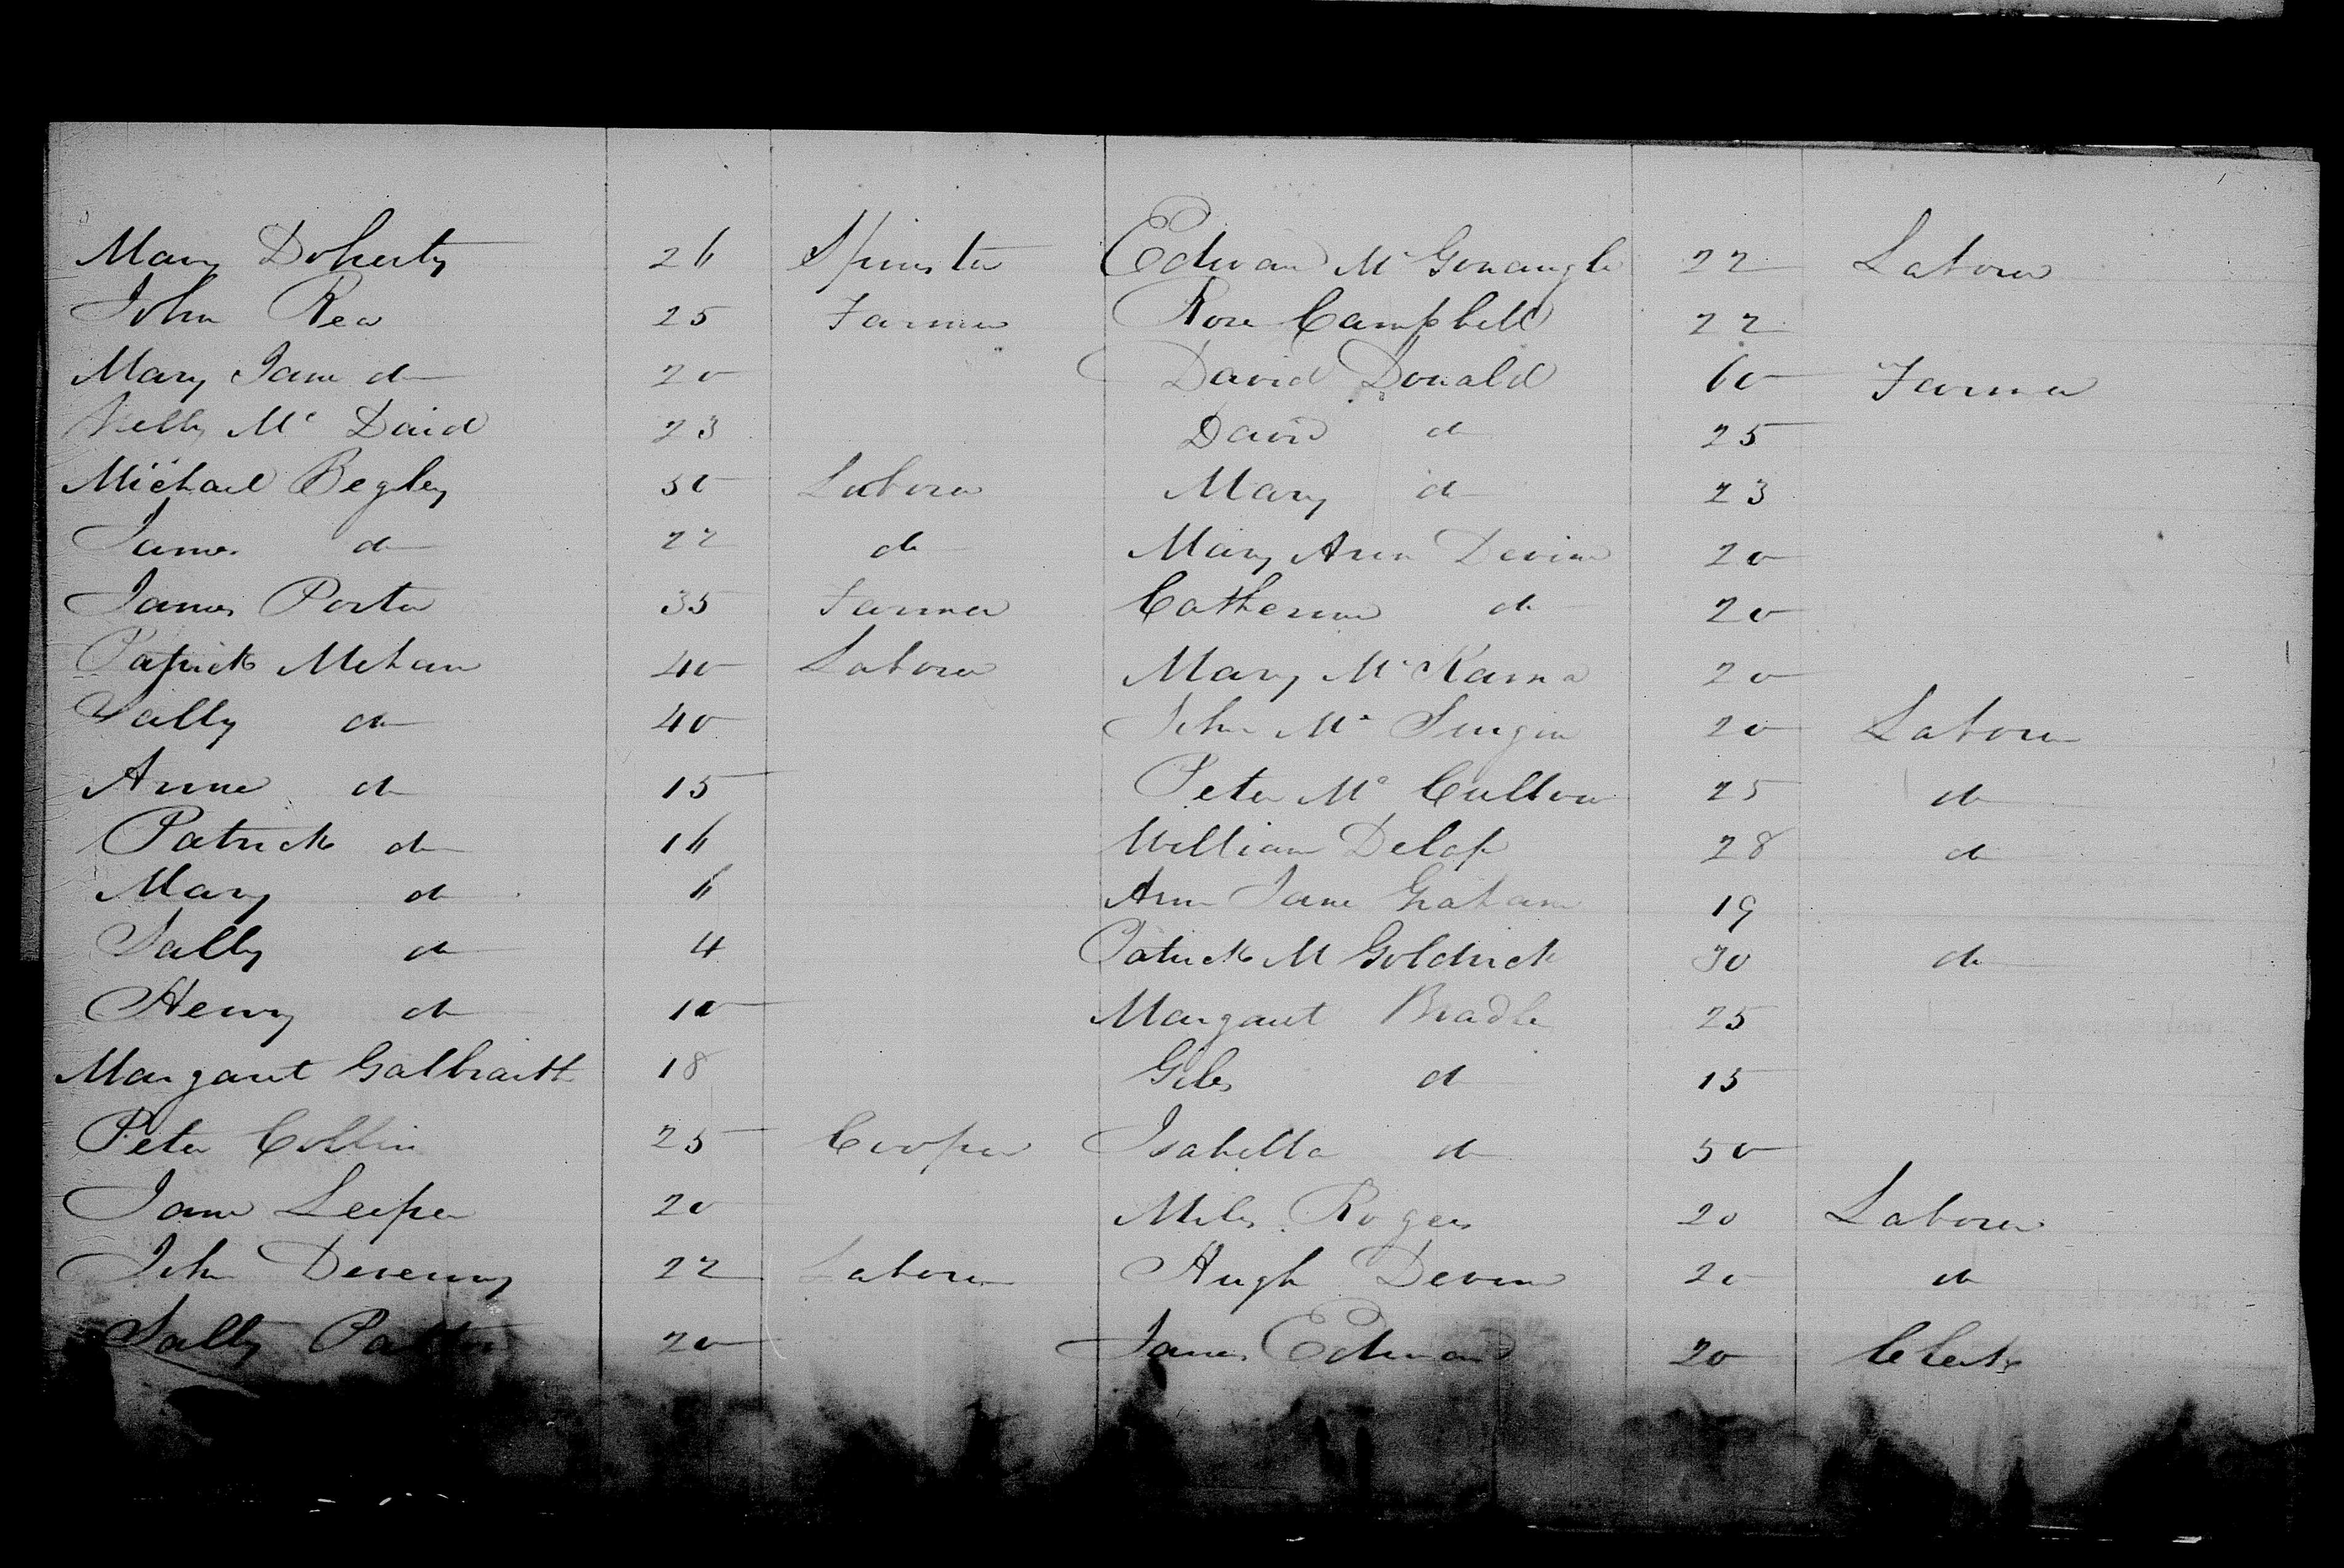 Mary Doherty 26 Spinster
John Rea 25 Farmer
Mary Jane do 20
Nelly Mc Daid 23
Michael Begley 50 Laborer
James do 22 do
James Porter 35 Farmer
Patrick Mehan 40 Laborer
Sally do 40
Anne do 15
Patrick do 16
Mary do 6
Sally do 4
Henry do 10
Margaret Galbraith 18
Peter Collin 25 Cooper
Jane Leeper 20
John Deveny 22 Laborer
Sally 20
Edward Mc Gonaugle 22 Laborer
Rose Campbell 22
David Donald 60 Farmer
David do 25
Mary do 23
Mary Ann Devine 20
Catherine do 20
Mary Mc 20
John Mc 20 Laborer
Peter Mc 25 do
William Delap 28 do
Ann Jane Graham 19
Patrick M Goldrick 30 do
Margaret 25
Giles do 15
Isabella do 50
Miles Rogers 20 Laborer
Hugh Devine 20 do
James Edward 20 Clerk